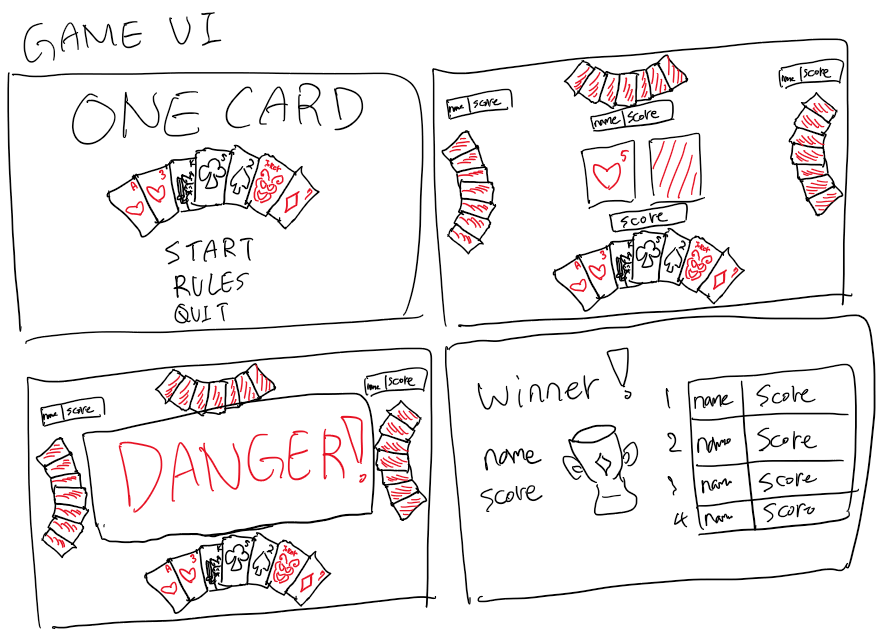 GAME UI
ONE CARD
A
3
K
5
2
START
RULES
QUIT
name score
name score
name score
5
score
A
3
2
name score
name score
DANGER!
A
3
K
5
2
winner!
name
score
1 name score
2 name score
3 nam score
4 nam score